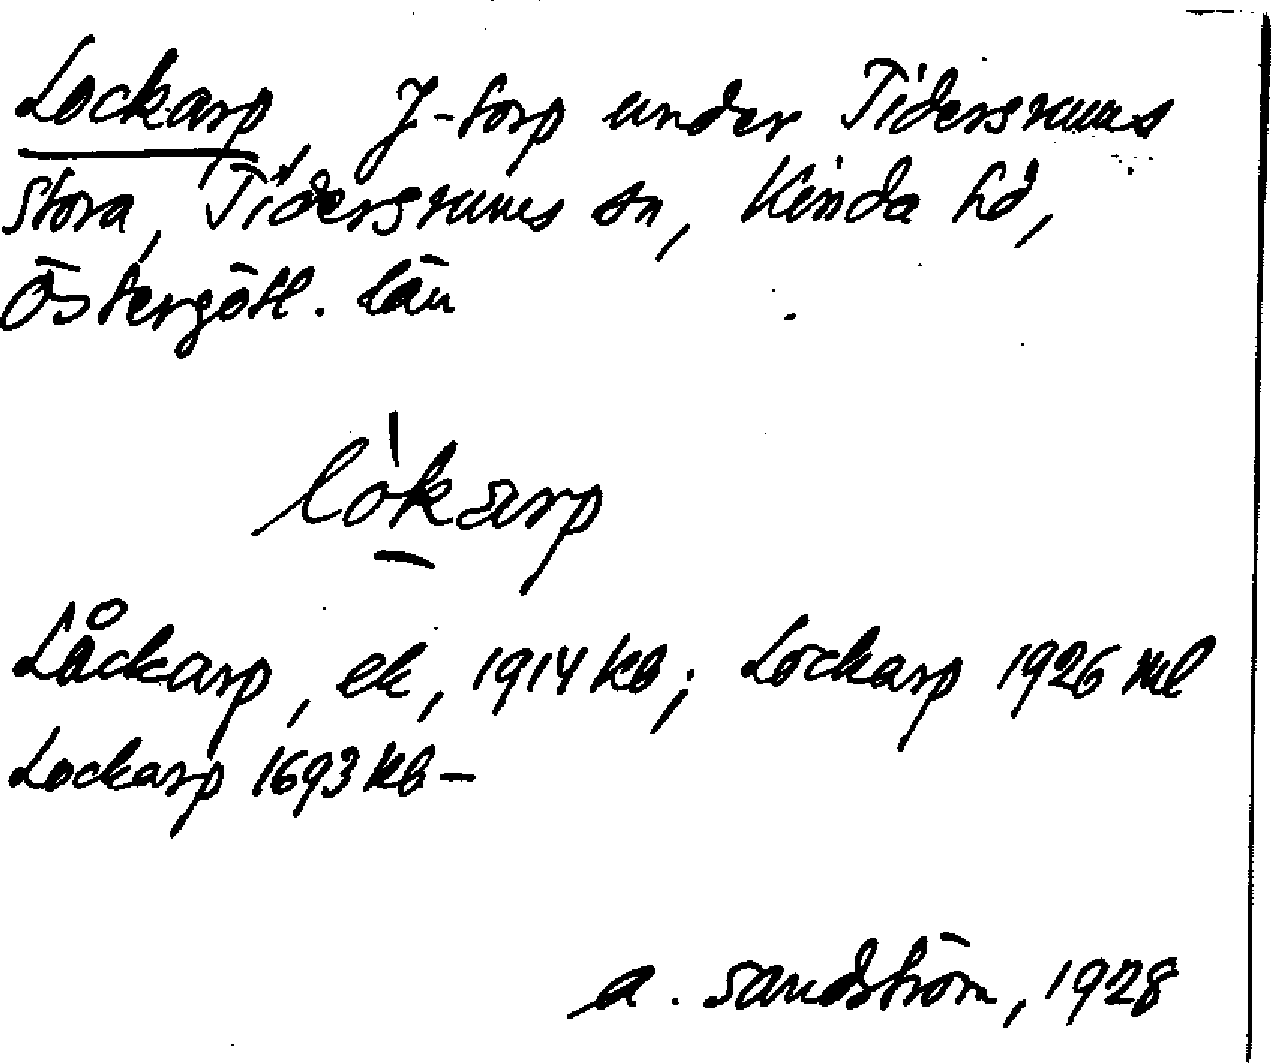 Lockarp, J-torp under Tidersrums
Stora, Tidersrums sn, Kinda hd,
Östergötl. län
lòkarp
Låckarp, ek, 1914 kb; Lockarp 1926 ml
Lockarp 1693 kb –
A. Sandström, 1928